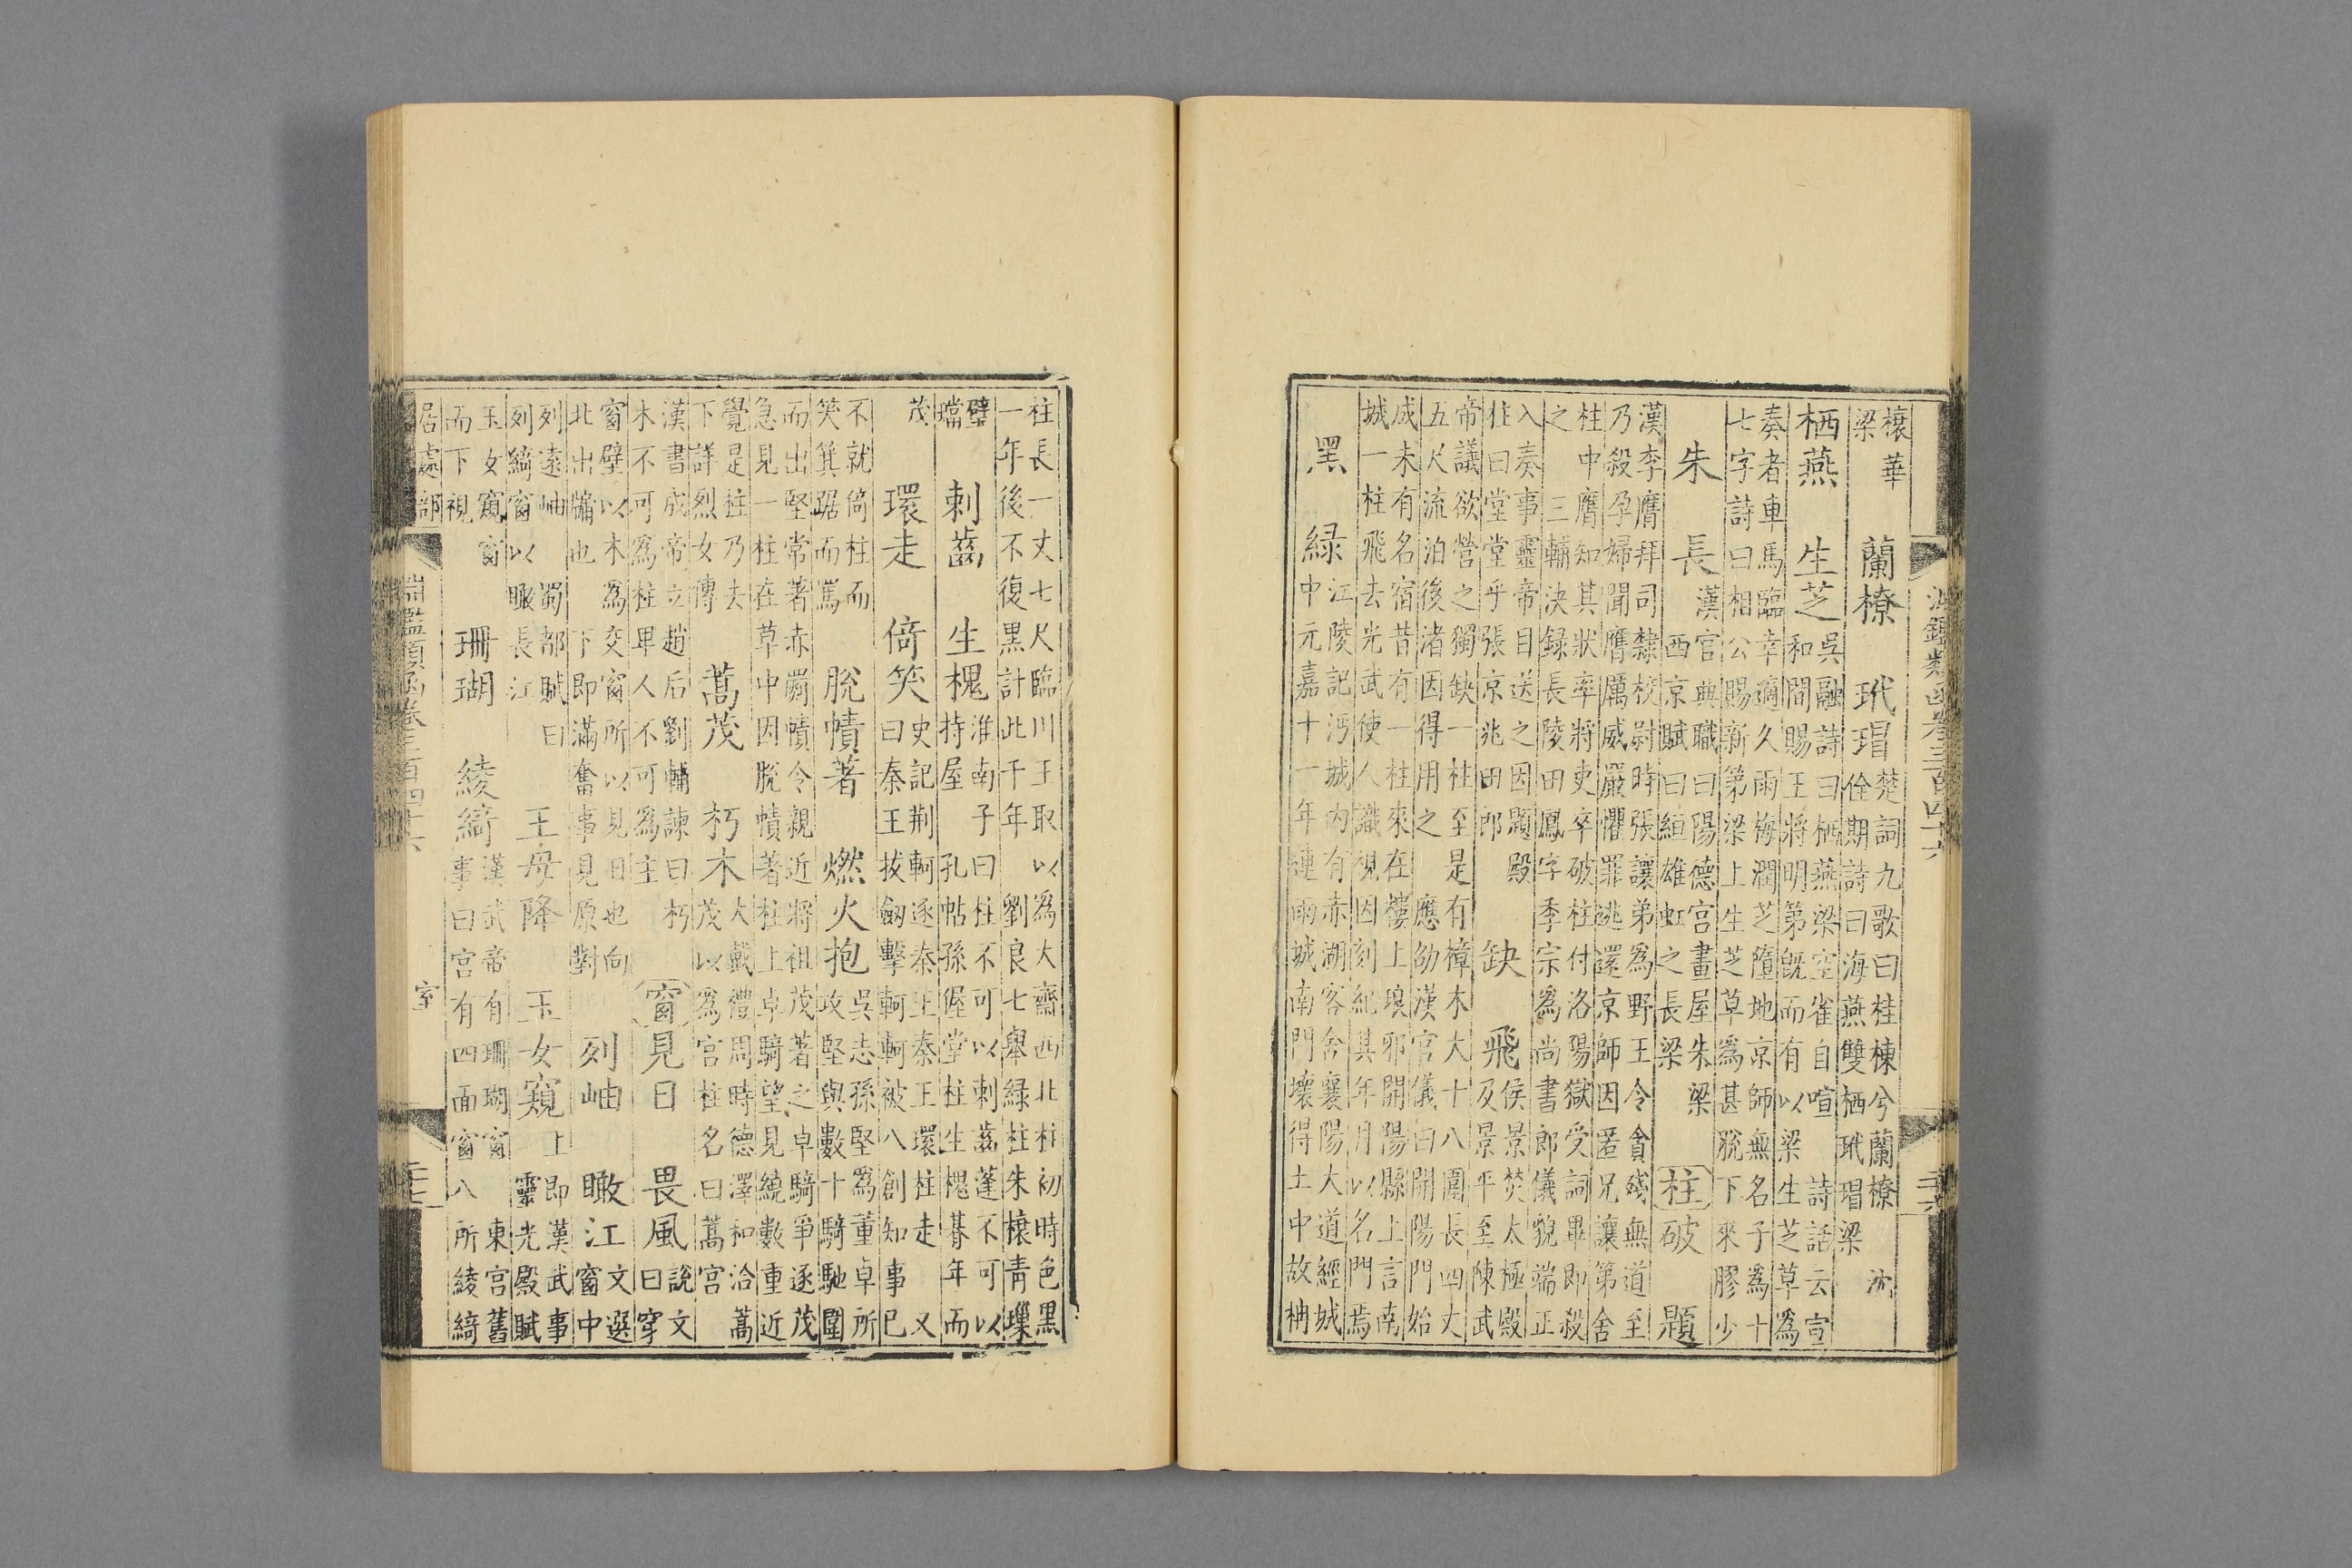 淵鑑類函卷三百四十六
榱華
梁
蘭橑　玳瑁
楚詞九歌曰桂棟兮蘭橑　沈
佺期詩曰海燕雙栖玳瑁梁
栖燕　生芝
吳融詩曰栖燕梁空雀自喧　詩話云宣
和間賜王將明第既而有以梁生芝草為
奏者車馬臨幸適久雨梅潤芝墮地京師無名子為十
七字詩曰相公賜新第梁上生芝草為甚脫下來膠少
朱　長
漢宮典職曰陽德宮畫屋朱梁
西京賦曰絙雄虹之長梁
柱　破　題
漢李膺拜司隸校尉時張讓弟為野王令貪殘無道至
乃殺孕婦聞膺厲威嚴懼罪逃還京師因匿兄讓第舍
柱中膺知其狀率將吏卒破柱付洛陽獄受詞畢即殺
之　三輔決録長陵田鳳字季宗為尚書郎儀貌端正
入奏事靈帝目送之因題殿
柱曰堂堂乎張京兆田郎
缺　飛
侯景焚太極殿
及景平至陳武
帝議欲營之獨缺一柱至是有樟木大十八圍長四丈
五尺流泊後渚因得用之　應劭漢官儀曰開陽門始
成未有名宿昔有一柱來在樓上琅邪開陽縣上言南
城一柱飛去光武使人識視因刻紀其年月以名門焉
黑　緑
江陵記沔城内有赤湖客舍襄陽大道經城
中元嘉十一年連雨城南門壞得土中故柟
柱長一丈七尺臨川王取以為大齋西北柱初時色黑
一年後不復黑計此千年　劉良七舉緑柱朱榱青璅
璧
璫
刺齒　生槐
淮南子曰柱不可以刺齒蓬不可以
持屋　孔帖孫偓堂柱生槐朞年而
茂
環走　倚笑
史記荆軻逐秦王秦王環柱走　又
曰秦王拔劔擊軻軻被八創知事已
不就倚柱而
笑箕踞而駡
脫幘著　燃火抱
吳志孫堅為董卓所
攻堅與數十騎馳圍
而出堅常著赤罽幘令親近將祖茂著之卓騎爭逐茂
急見一柱在草中因脫幘著柱上卓騎望見繞數重近
覺是柱乃去
下詳烈女傳
蒿茂　朽木
大戴禮周時德澤和洽蒿
茂以為宮柱名曰蒿宮
漢書成帝立趙后劉輔諫曰朽
木不可為柱卑人不可為主
窗　見日　畏風
說文
曰穿
窗壁以木為交窗所以見日也向
北出牖也　下即滿奮事見原對
列岫　瞰江
文選
窗中
列遠岫　蜀都賦曰
列綺窗以瞰長江
王母降　玉女窺
上即漢武事
靈光殿賦
玉女窺窗
而下視
珊瑚　綾綺
漢武帝有珊瑚窗　東宮舊
事曰宮有四面窗八所綾綺
居處部　淵鑑類函卷三百四十六　室